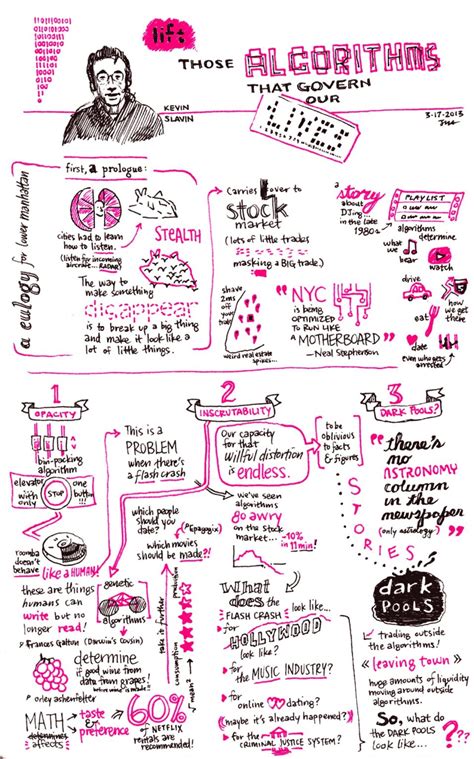 lift
THOSE ALGORITHMS
THAT GOVERN
OUR
LIVES
KEVIN
SLAVIN
3-17-2013
a eulogy for lower manhattan
first, a prologue:
cities had to learn
how to listen.
(listen for incoming
aircraft... RADAR!)
STEALTH
The way to
make something
disappear
is to break up a big thing
and make it look like a
lot of little things.
carries over to
stock
market
(lots of little trades
masking a BIG trade.)
shave
2ms
off
your
time
weird real estate
spikes...
"NYC
is being
optimized
to run like
a MOTHERBOARD"
— Neal Stephenson
a story
about
DJing
in the late
1980s
PLAYLIST
algorithms
determine
what
we
hear
watch
drive
how
we get
there
eat
date
even who gets
arrested
1
OPACITY
bin-packing
algorithm
elevator
with only
STOP
one
button!!!
roomba
doesn't
behave
like a HUMAN!
these are things
humans can
write but no
longer read!
Frances Galton (Darwin's cousin)
determine
if good wine from
data from grapes!
before wine is made!
orley ashenfelter
MATH
determines
affects
taste
&
preference
This is a
PROBLEM
when there's
a flash crash
genetic
algorithms
2
INSCRUTABILITY
Our capacity
for that
willful distortion
is endless.
to be
oblivious
to facts
& figures
which people
should you
date?
(epagogix)
which movies
should be made?!
we've seen
algorithms
go awry
on the stock
market... -10% in
11 min!
take it further
production
consumption
mean?
60%
of NETFLIX
rentals are
recommended!
What
does the look like...
FLASH CRASH
for
HOLLYWOOD
look like?
for
the MUSIC INDUSTRY?
for
online dating?
(maybe it's already happened?)
for the
CRIMINAL JUSTICE SYSTEM?
3
DARK POOLS?
STORIES
"there's
no
ASTRONOMY
column
in the
newspaper
(only astrology)"
dark
POOLS
trading outside
the algorithms!
"leaving town"
huge amounts of liquidity
moving around outside
algorithms.
So, what do
the DARK POOLS
look like...